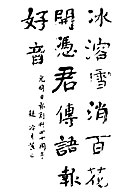 冰溶雪消百花
開憑君傳語報
好音
光明日报创刊四十周年